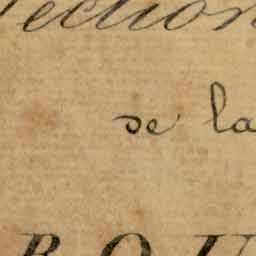 ection
de la
ROU